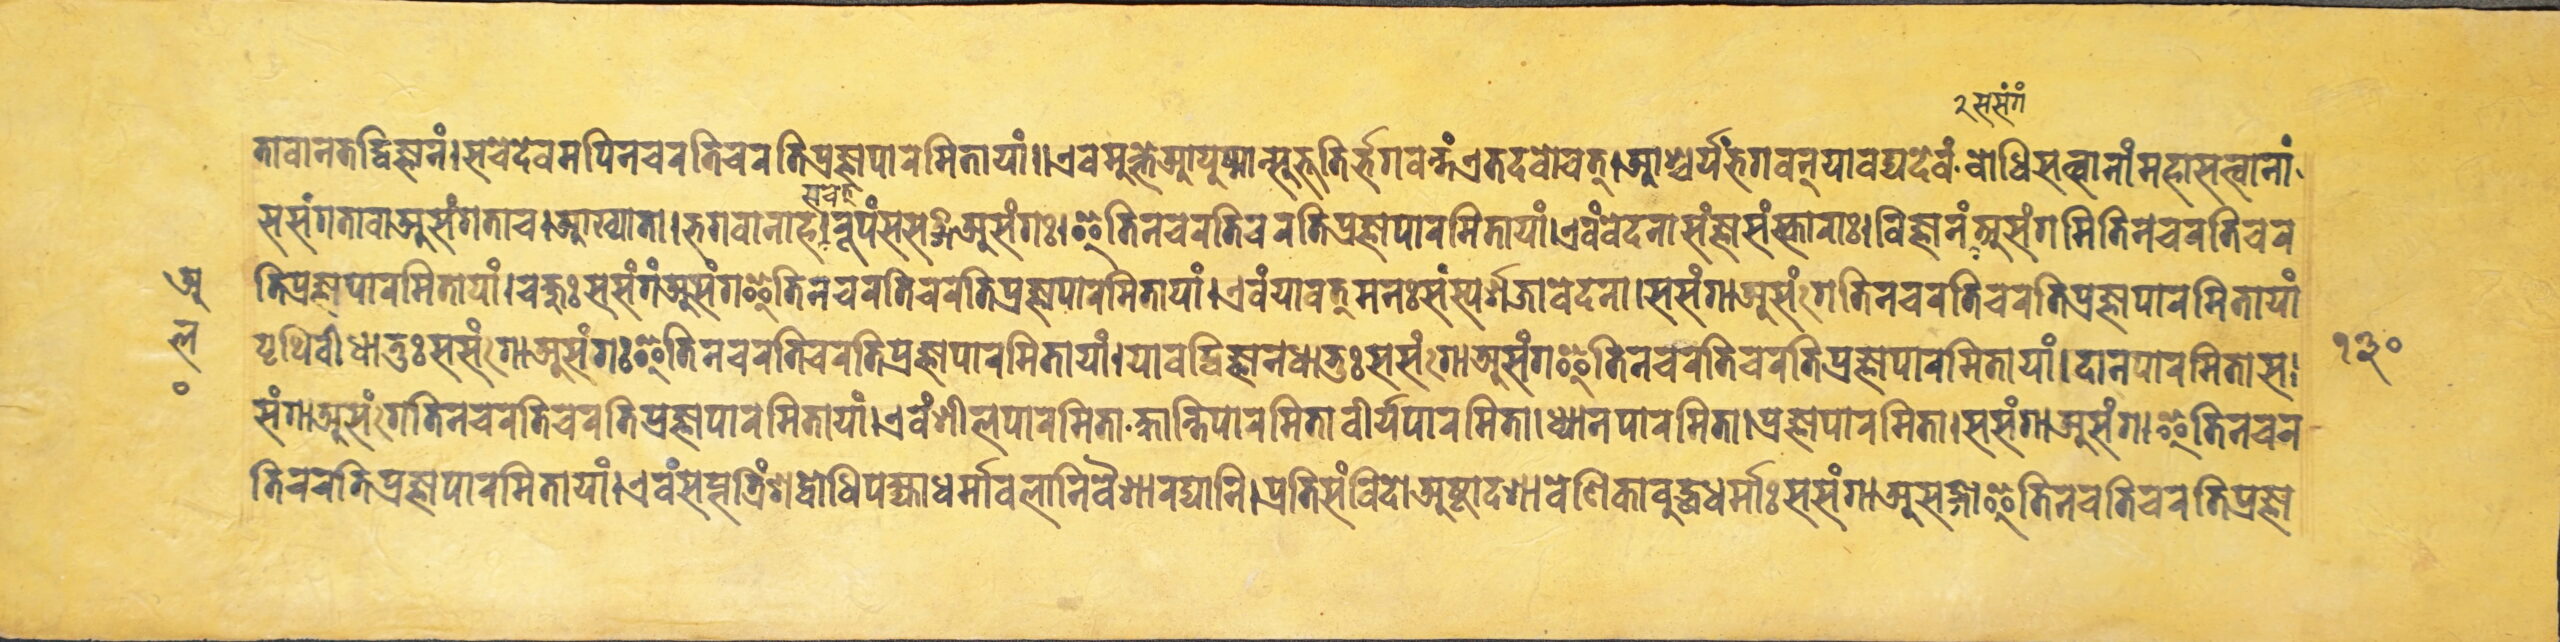 २ ससंगं
तावानतद्विज्ञानं।सचेदेवमपिनचरतिचरतिप्रज्ञापारमितायां॥एवमुक्तेआयुष्मान्सुभूतिर्भगवन्तंएतदवोचत्।आश्चर्यंभगवन्यावद्यदेवंबोधिसत्वानांमहासत्वानां
सचेत्
ससंगतावाअसंगताच।आख्याता।भगवानाह।रूपंससङ्गिअसंगः।इतिनचरतिचरतिप्रज्ञापारमितायां।एवंवेदनासंज्ञासंस्काराः।विज्ञानंअसंगमितिनचरतिचर
तिप्रज्ञापारमितायां।चक्षुःससंगंअसंगइतिनचरतिचरतिप्रज्ञापारमितायां।एवंयावत्मनःसंस्पर्शजावेदना।ससंगाअसंगेतिनचरतिचरतिप्रज्ञापारमितायां
पृथिवीधातुःससंगोअसंगःइतिनचरतिचरतिप्रज्ञापारमितायां।यावद्विज्ञानधातुःससंगोअसंगइतिनचरतिचरतिप्रज्ञापारमितायां।दानपारमितास
संगाअसंगेतिनचरतिचरतिप्रज्ञापारमितायां।एवंशीलपारमिताक्षान्तिपारमितावीर्यपारमिता।ध्यानपारमिता।प्रज्ञापारमिता।ससंगाअसंगाइतिनचर
तिचरतिप्रज्ञापारमितायां।एवंसप्तत्रिंशद्बोधिपक्ष्याधर्माबलानिवैशारद्यानि।प्रतिसंविदोअष्टादशावेणिकाबुद्धधर्माःससंगाअसङ्गाइतिनचतिचरतिप्रज्ञा
अ
ल
०
१३०